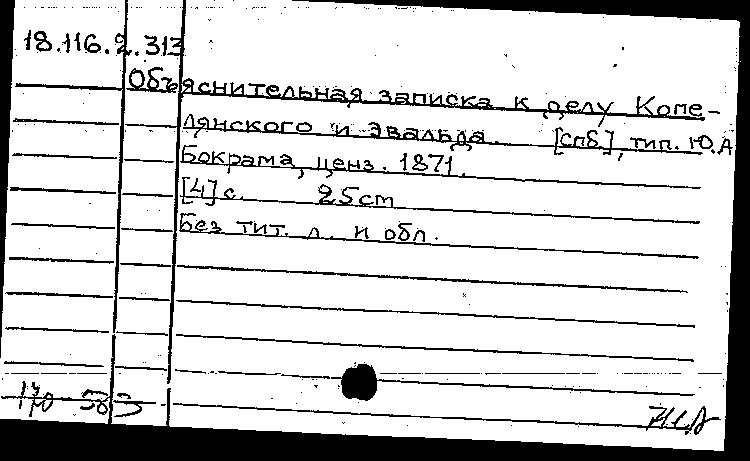 18.116.2.313
Объяснительная записка к делу Копе-
лянского и Эвальда. [спб], тип. Ю.А
Бокрама, ценз. 1871.
[4] с. 25 cm
Без тит. л. и обл.